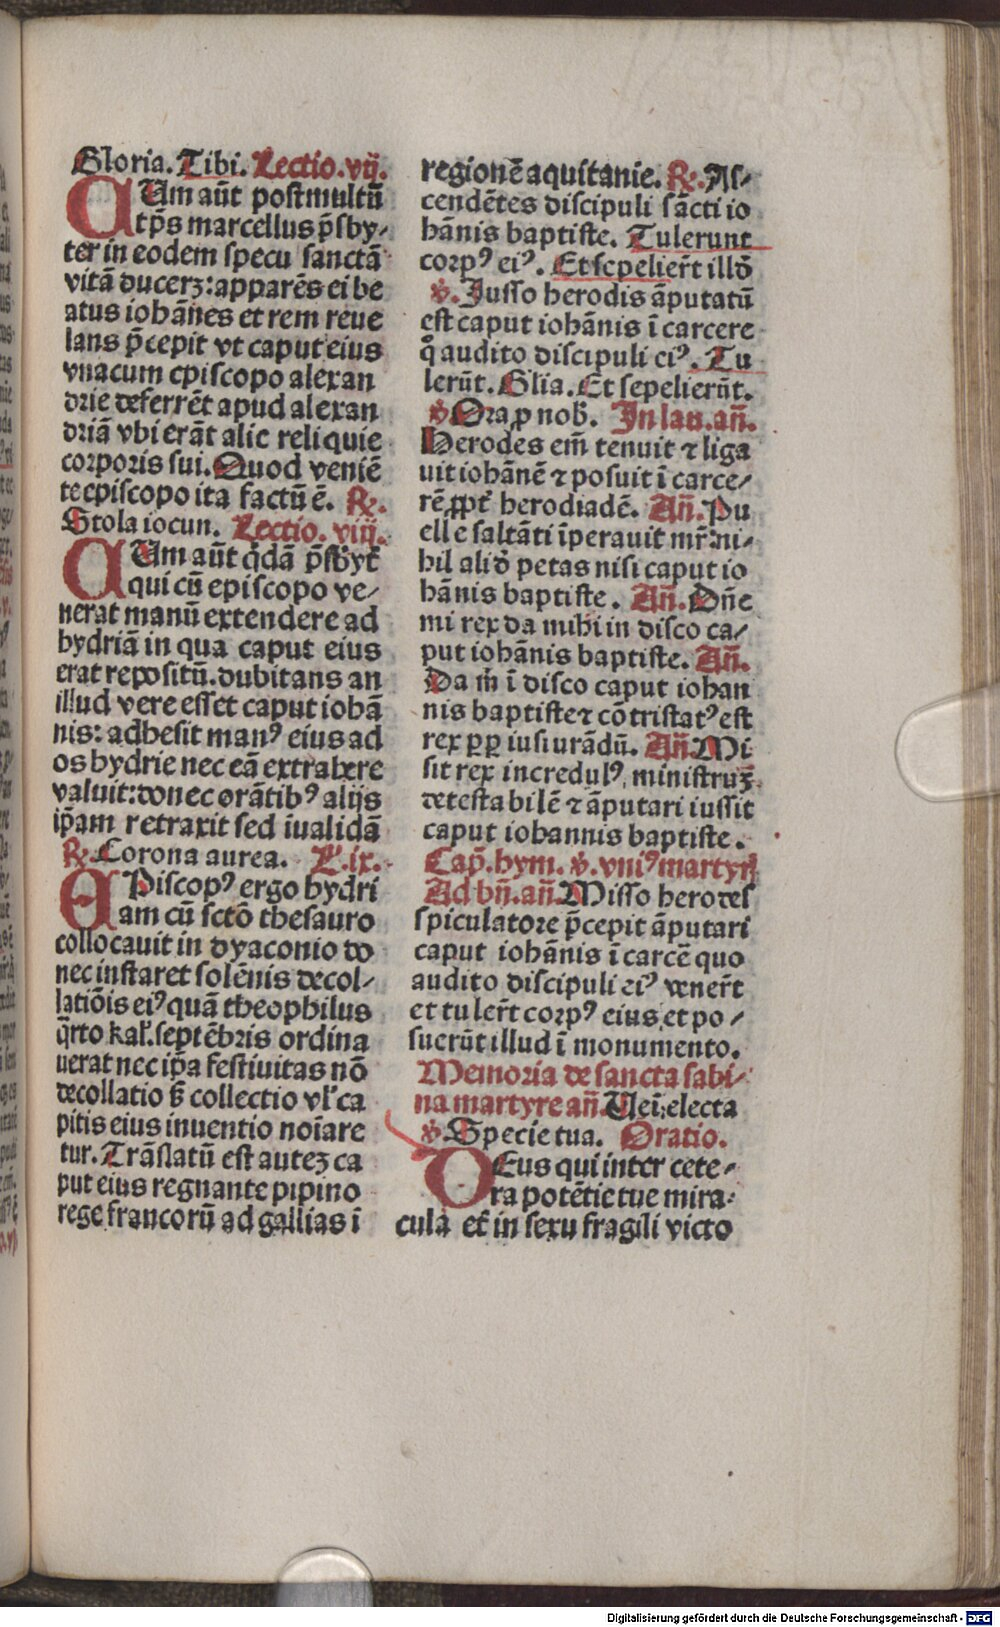 Gloria. Tibi. Lectio. vij.
CUm aūt postmultū
tp̄s marcellus p̄sby⸗
ter in eodem specu sanctā
vitā ducerꝫ: apparēs ei be
atus iohānes et rem reue
lans p̄cepit vt caput eius
vnacum episcopo alexan
drie deferrēt apud alexan
driā vbi erāt alie reliquie
corporis sui. Quod veniē
te episcopo ita factū ē. ℞.
Stola iocun. Lectio. viij.
CUm aūt q̇dā p̄sbyt̄
qui cū episcopo ve⸗
nerat manū extendere ad
hydriā in qua caput eius
erat repositū. dubitans an
illud vere esset caput iohā
nis: adhesit manꝰ eius ad
os hydrie nec eā extrahere
valuit: donec orātibꝰ alijs
ip̄am retraxit sed īualidā
℞. Corona aurea. L. ix.
EPiscopꝰ ergo hydri
am cū sctō thesauro
collocauit in dyaconio do
nec instaret solēnis decol⸗
latiōis eiꝰ quā theophilus
q̄rto kal'. septēbris ordina
uerat nec ip̄a festiuitas nō
decollatio sꝫ collectio vl' ca
pitis eius inuentio noīare
tur. Trāslatū est auteꝫ ca
put eius regnante pipino
rege francorū ad gallias ī
regionē aquitanie. ℞. As⸗
cendētes discipuli sācti io
hānis baptiste. Tulerunt
corpꝰ eiꝰ. Et sepelier̄t illd̄
℣. Iusso herodis āputatū
est caput iohānis ī carcere
qͦ audito discipuli eiꝰ. Tu
lerūt. Glia. Et sepelierūt.
℣. Ora ꝓ nob̄. In lau. an̄.
Herodes em̄ tenuit ⁊ liga
uit iohānē ⁊ posuit ī carce⸗
rē ꝓpt̄ herodiadē. An̄. Pu
elle saltāti īperauit mr̄: ni⸗
hil alid̄ petas nisi caput io
hānis baptiste. An̄. Dn̄e
mi rex da mihi in disco ca⸗
put iohānis baptiste. An̄.
Da m̄ ī disco caput iohan
nis baptiste ⁊ cōtristatꝰ est
rex ꝓp iusiurādū. An̄. Mi
sit rex incredulꝰ ministruꝫ
detestabilē ⁊ āputari iussit
caput iohannis baptiste.
Cap̄. hym. ℣. vniꝰ martyrꝭ
Ad bn̄. an̄. Misso herodes
spiculatore p̄cepit āputari
caput iohānis ī carcē quo
audito discipuli eiꝰ vener̄t
et tuler̄t corpꝰ eius et po⸗
suerūt illud ī monumento.
Memoria de sancta sabi⸗
na martyre an̄. Ueī: electa
℣. Specie tua. Oratio.
DEus qui inter cete⸗
ra potētie tue mira⸗
cula et̄ in sexu fragili victo
Digitalisierung gefördert durch die Deutsche Forschungsgemeinschaft - DFG